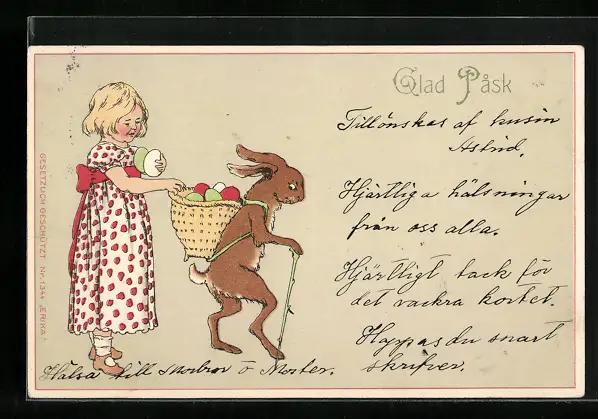 Glad Påsk
Tillönskas af kusin
Astrid.
Hjärtliga hälsningar
från oss alla.
Hjärtligt tack för
det vackra kortet.
Hoppas du snart
skrifver.
Hälsa till Morbror o Moster.
GESETZLICH GESCHÜTZT Nr. 1344 „ERIKA"